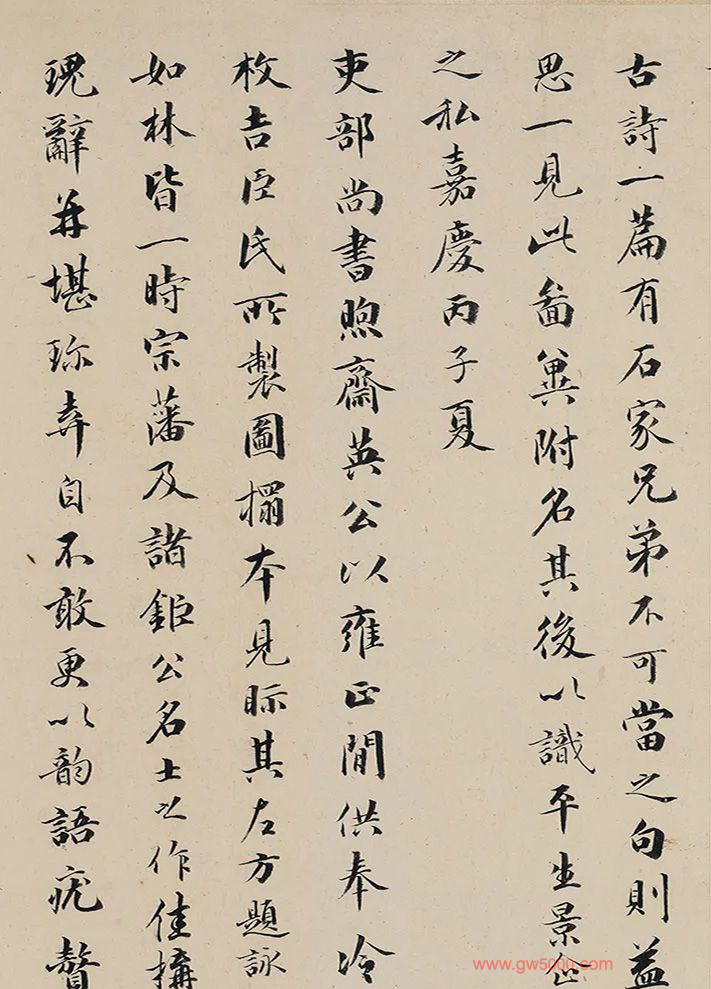 古詩一篇有石家兄弟不可當之句則益
思一見此啚兾附名其後以識平生景企
之私嘉慶丙子夏
吏部尚書煦齋英公以雍正間供奉冷
枚吉臣氏所製圖搨本見眎其左方題詠
如林皆一時宗藩及諸鉅公名士之作佳搆
瑰辭并堪珎弆自不敢更以韵語疣贅
www.gw500g.com